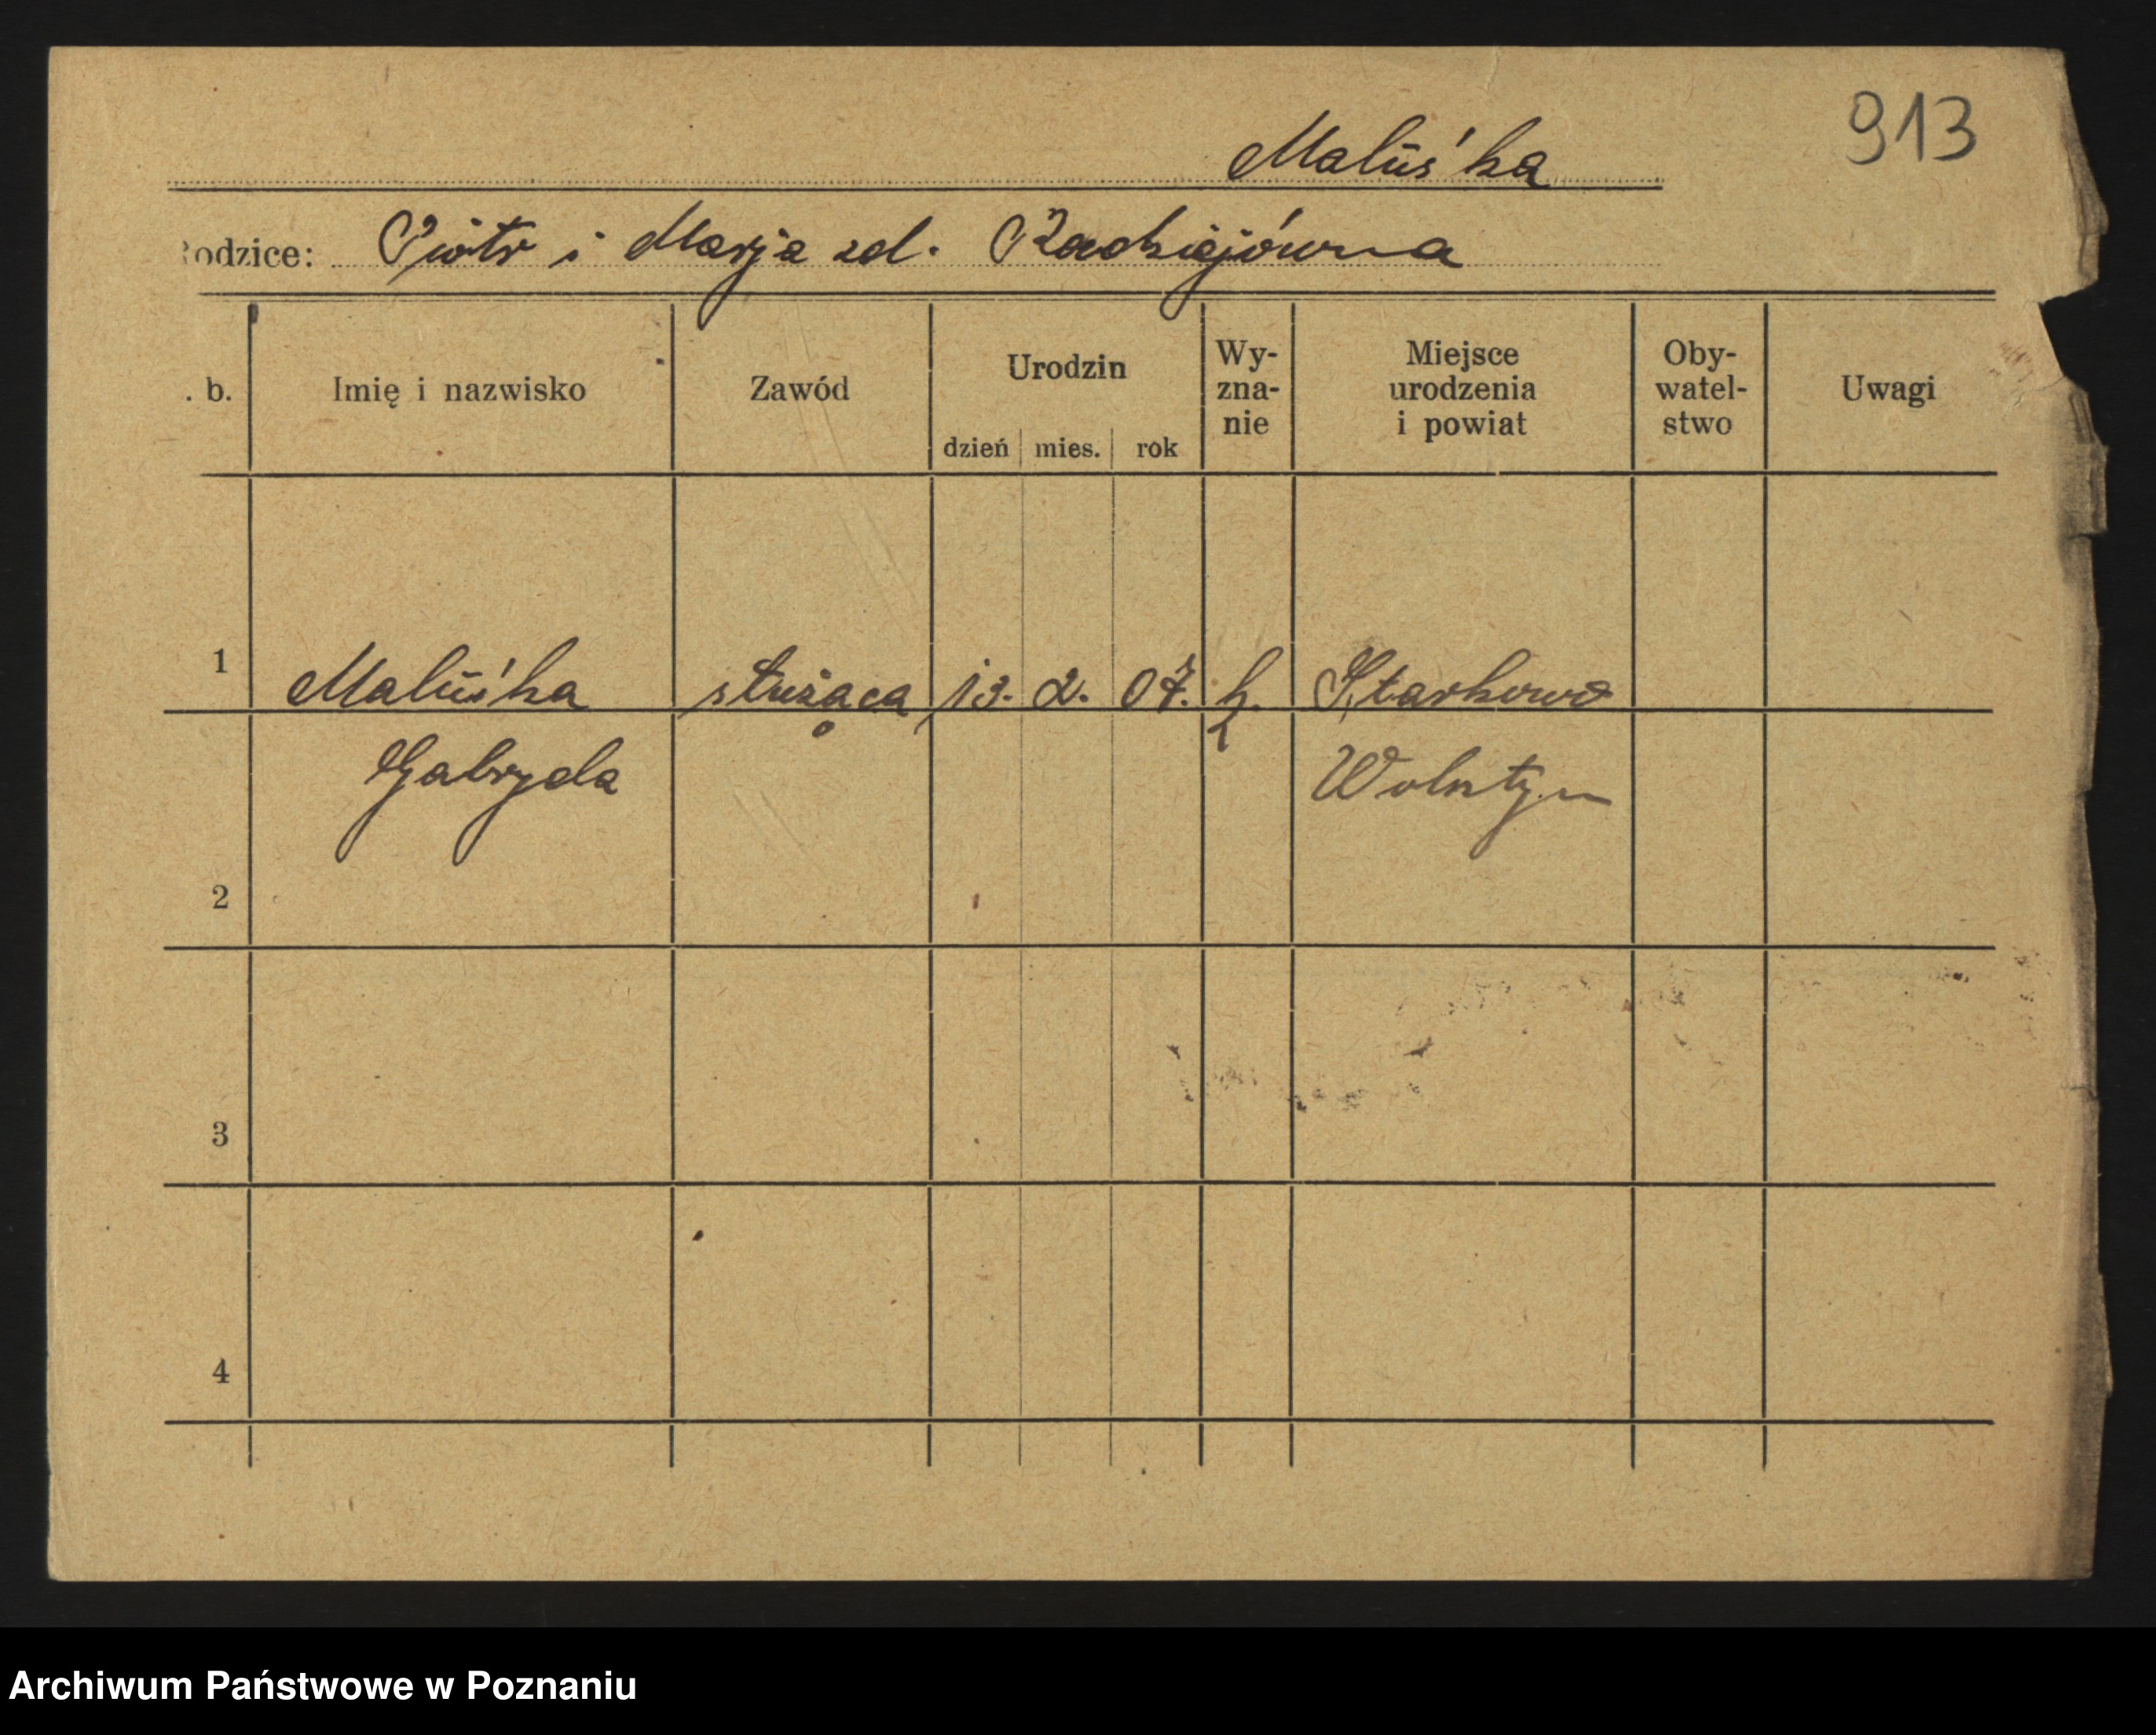 913
Maluśka
odzice: Piotr i Marja zd. Radziejówna
. b. Imię i nazwisko Zawód Urodzin dzień mies. rok Wy-zna-nie Miejsce urodzenia i powiat Oby-watel-stwo Uwagi
1 Maluśka służąca 13. 2. 07. k. Starkowo
Gabryela Wolsztyn
2
3
4
Archiwum Państwowe w Poznaniu